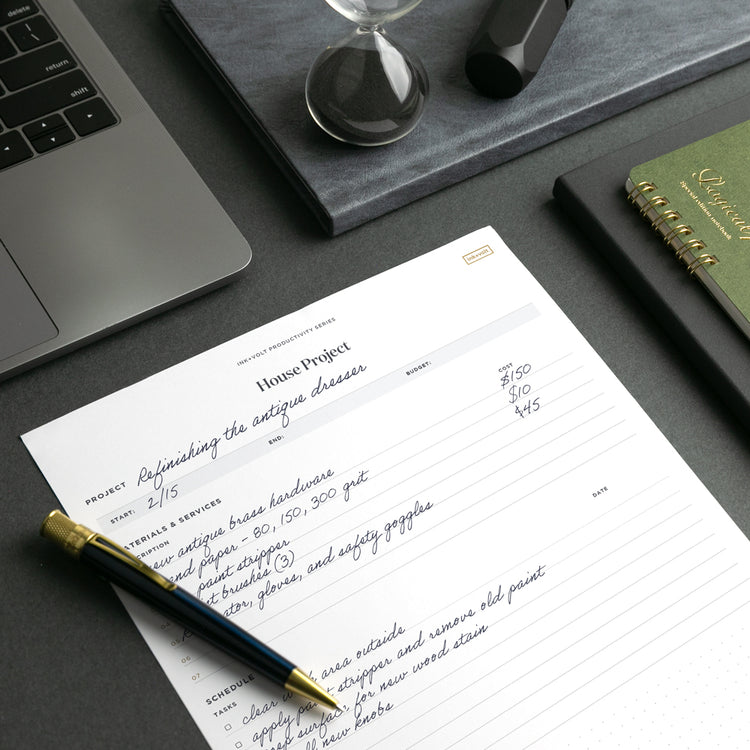 delete
return
shift
Special edition notebook
ink+volt
INK+VOLT PRODUCTIVITY SERIES
House Project
PROJECT Refinishing the antique dresser
START: 2/15 END: BUDGET:
MATERIALS & SERVICES
COST
new antique brass hardware $150
paper - 80, 150, 300 grit $10
paint stripper $45
brushes (3)
gloves, and safety goggles
06
07
SCHEDULE
DATE
TASKS
clear area outside
apply stripper and remove old paint
for new wood stain
new knobs